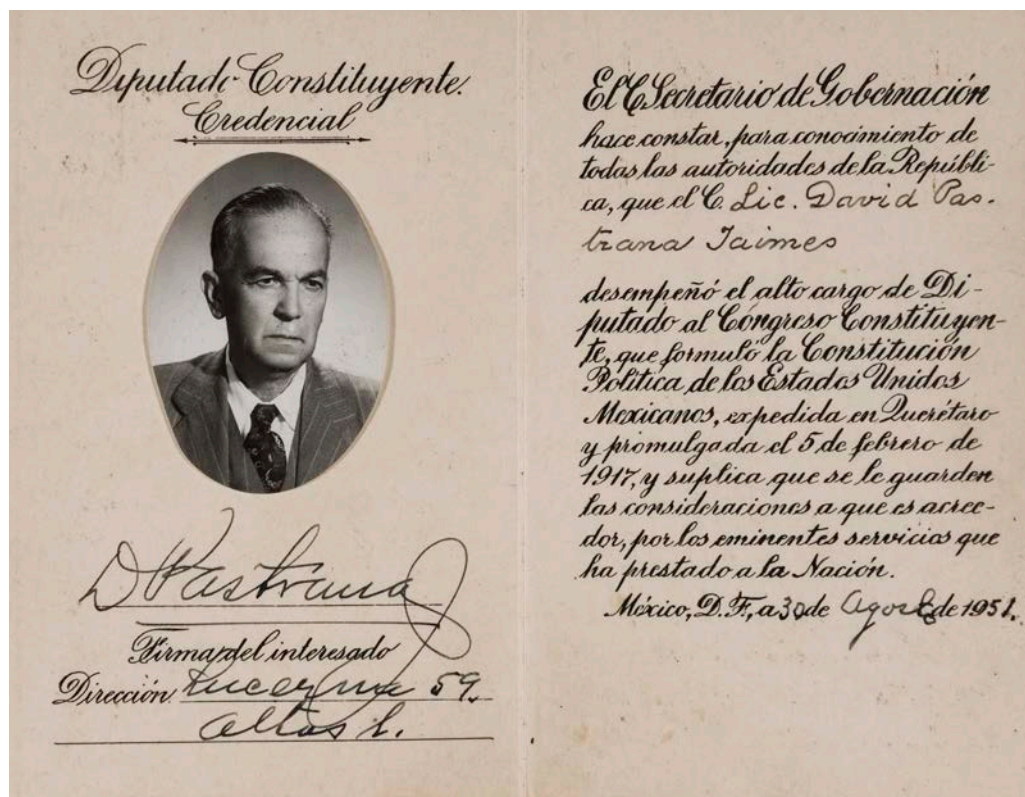 Diputado Constituyente.
Credencial
D Pastrana J
Firma del interesado
Dirección Lucerna 59.
Altos 1.
El C. Secretario de Gobernación
hace constar, para conocimiento de
todas las autoridades de la Repúbli-
ca, que el C. Lic. David Pas-
trana Jaimes
desempeñó el alto cargo de Di-
putado al Congreso Constituyen-
te, que formuló la Constitución
Política de los Estados Unidos
Mexicanos, expedida en Querétaro
y promulgada el 5 de febrero de
1917, y suplica que se le guarden
las consideraciones a que es acree-
dor, por los eminentes servicios que
ha prestado a la Nación.
México, D. F., a 30 de Agosto de 1951.